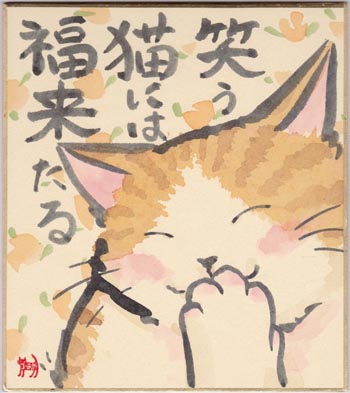 笑う
猫には
福来たる